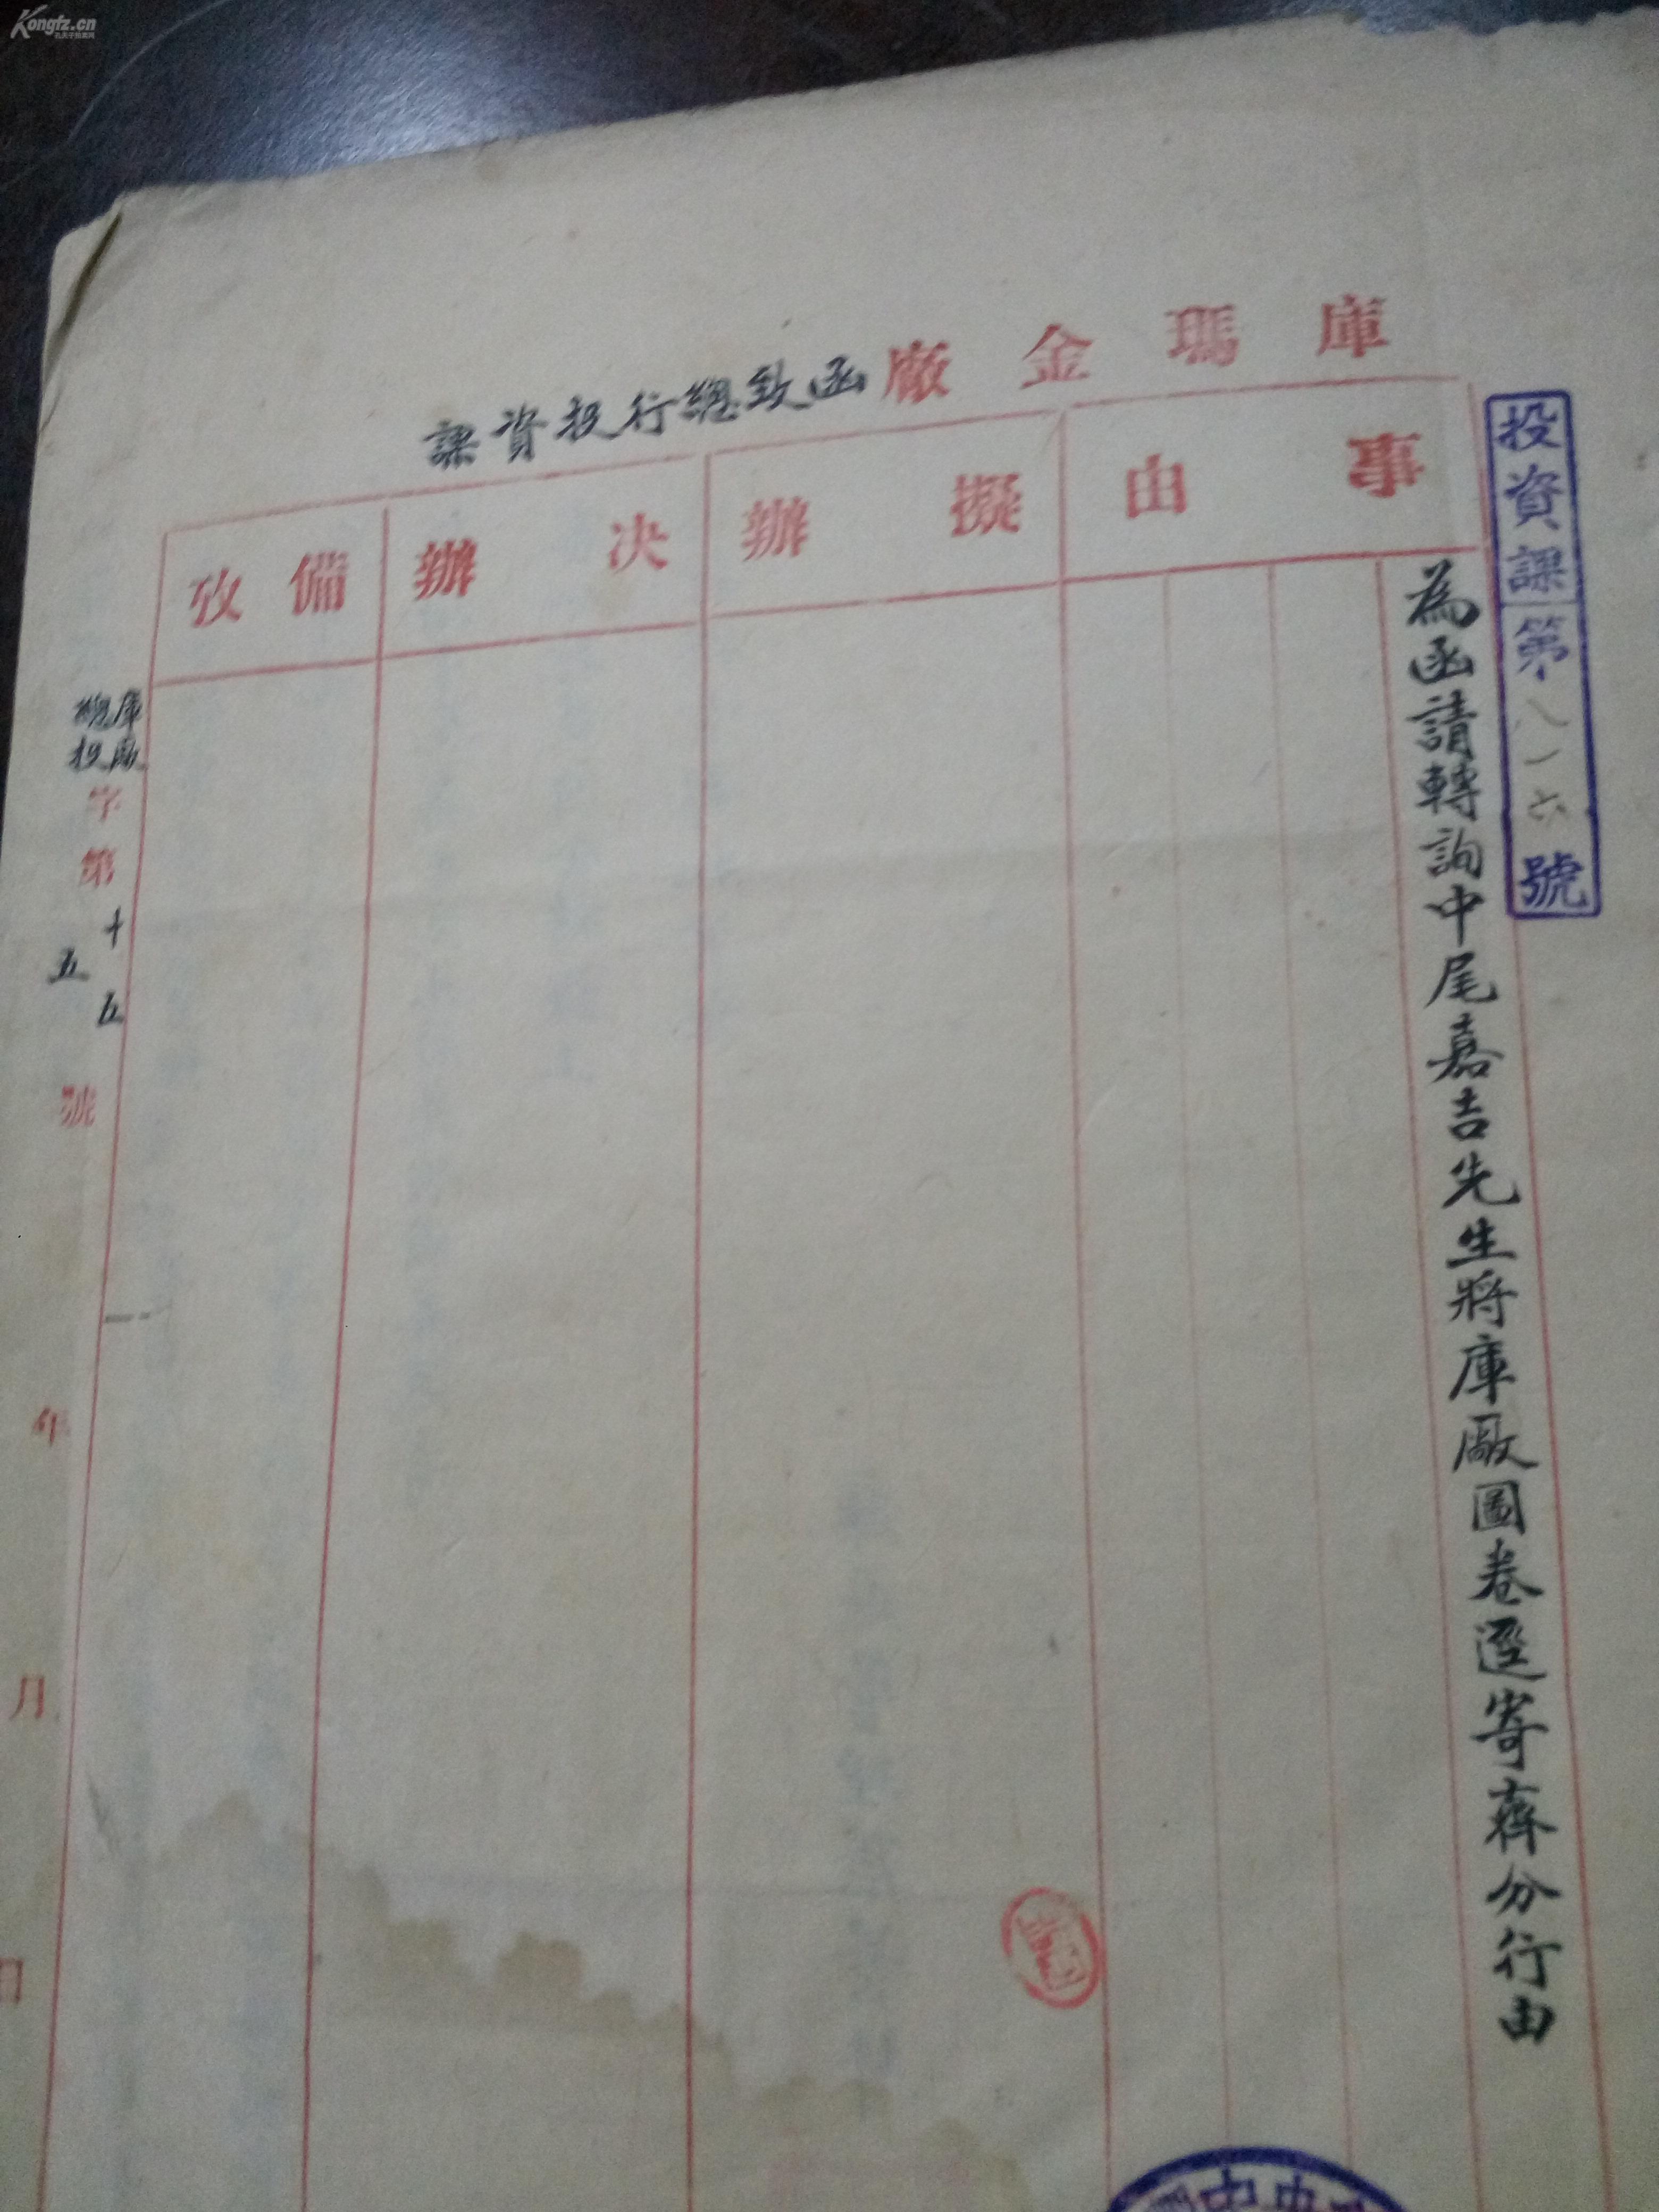 Kongfz.cn
孔夫子拍卖网
庫瑪金廠函致總行投資課
投資課第八一六號
事由
擬辦
決辦
備攷
為函請轉詢中尾嘉吉先生將庫廠圖卷逕寄齊分行由
庫廠
總投
字第十五
五
號
年
月
日
中央